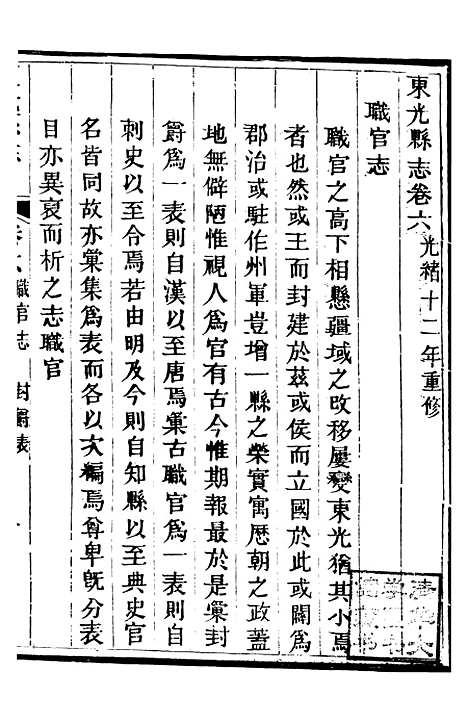 東光縣志卷六 光緒十二年重修
職官志
職官之高下相懸疆域之改移屢變東光猶其小焉
者也然或王而封建於茲或侯而立國於此或闢爲
郡治或駐作州軍豈增一縣之榮實寓歴朝之政蓋
地無僻陋惟視人爲官有古今惟期報最於是彙封
爵爲一表則自漢以至唐焉彙古職官爲一表則自
刺史以至令焉若由明及今則自知縣以至典史官
名皆同故亦彙集爲表而各以次編焉尊卑旣分表
目亦異裒而析之志職官
職官志 封爵表